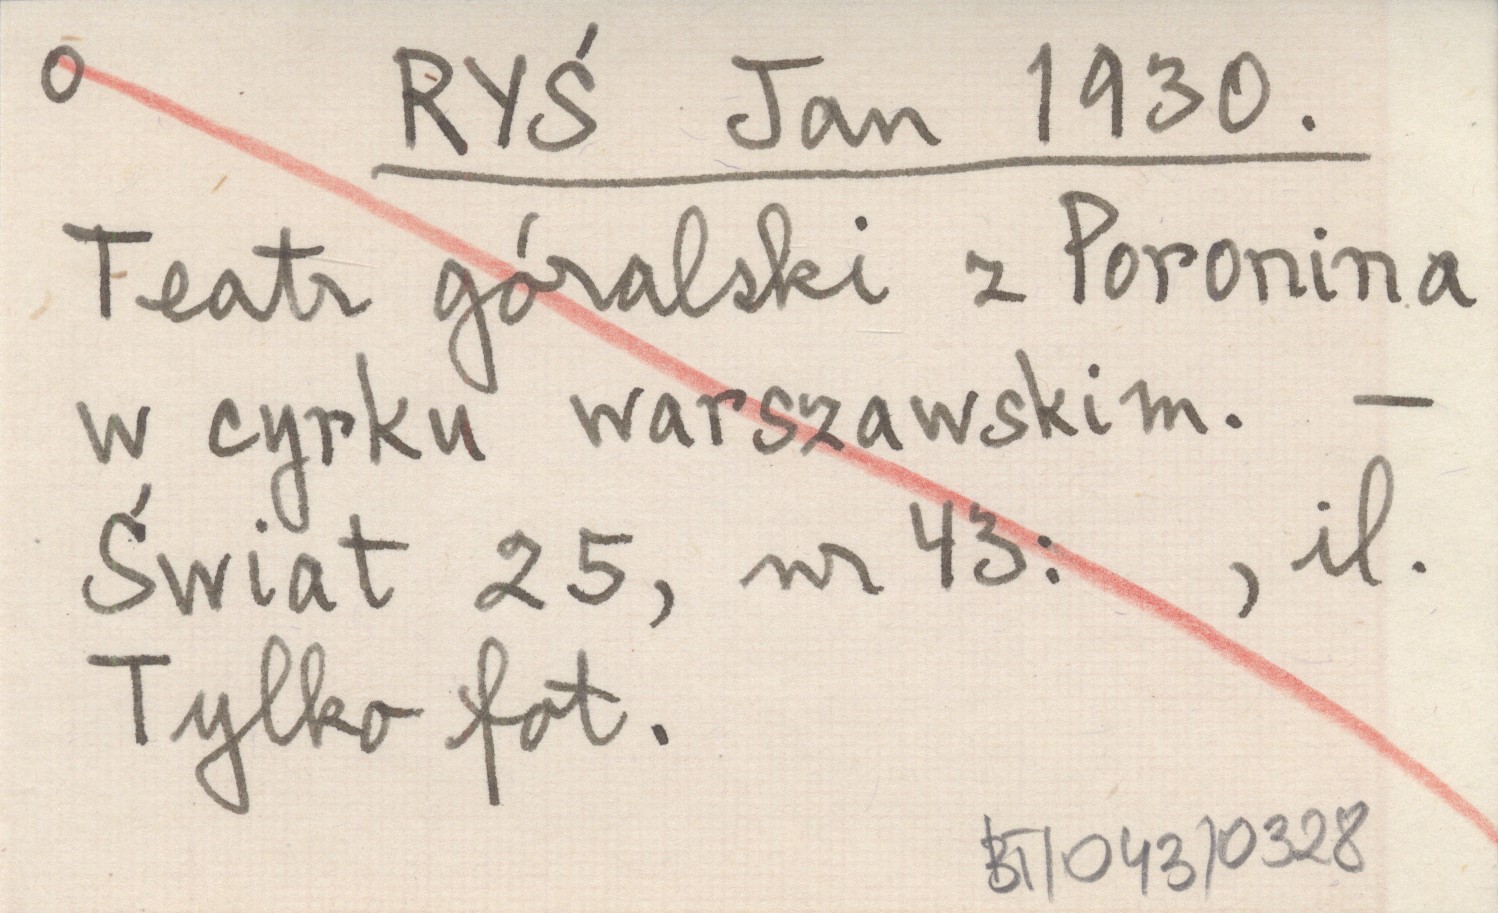 o RYŚ Jan 1930.
Teatr góralski z Poronina
w cyrku warszawskim. –
Świat 25, nr 43: , il.
Tylko fot.
BT/043/0328